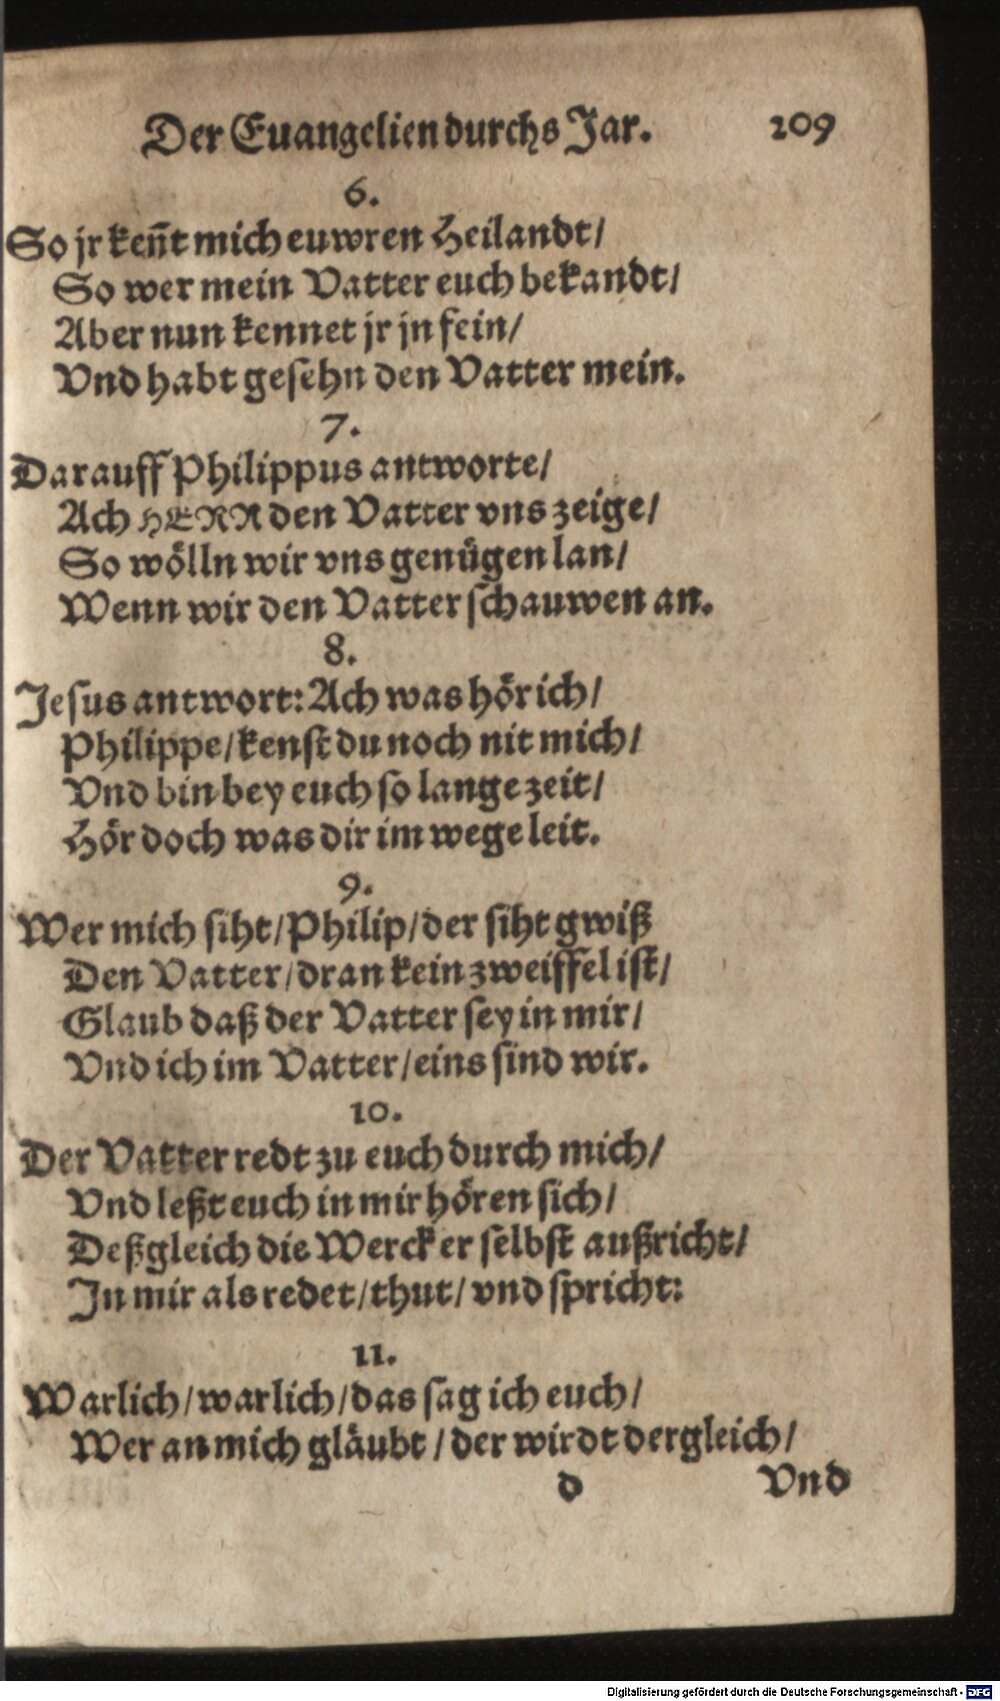 Der Euangelien durchs Jar. 209
6.
So jr keñt mich euwren Heilandt/
So wer mein Vatter euch bekandt/
Aber nun kennet jr jn fein/
Vnd habt gesehn den Vatter mein.
7.
Darauff Philippus antworte/
Ach HERR den Vatter vns zeige/
So wölln wir vns genügen lan/
Wenn wir den Vatter schauwen an.
8.
Jesus antwort: Ach was hör ich/
Philippe/ kenst du noch nit mich/
Vnd bin bey euch so lange zeit/
Hör doch was dir im wege leit.
9.
Wer mich siht/ Philip/ der siht gwiß
Den Vatter/ dran kein zweiffel ist/
Glaub daß der Vatter sey in mir/
Vnd ich im Vatter/ eins sind wir.
10.
Der Vatter redt zu euch durch mich/
Vnd leßt euch in mir hören sich/
Deßgleich die Werck er selbst außricht/
In mir als redet/ thut/ vnd spricht:
11.
Warlich/ warlich/ das sag ich euch/
Wer an mich gläubt/ der wirdt dergleich/
d Vnd
Digitalisierung gefördert durch die Deutsche Forschungsgemeinschaft - DFG